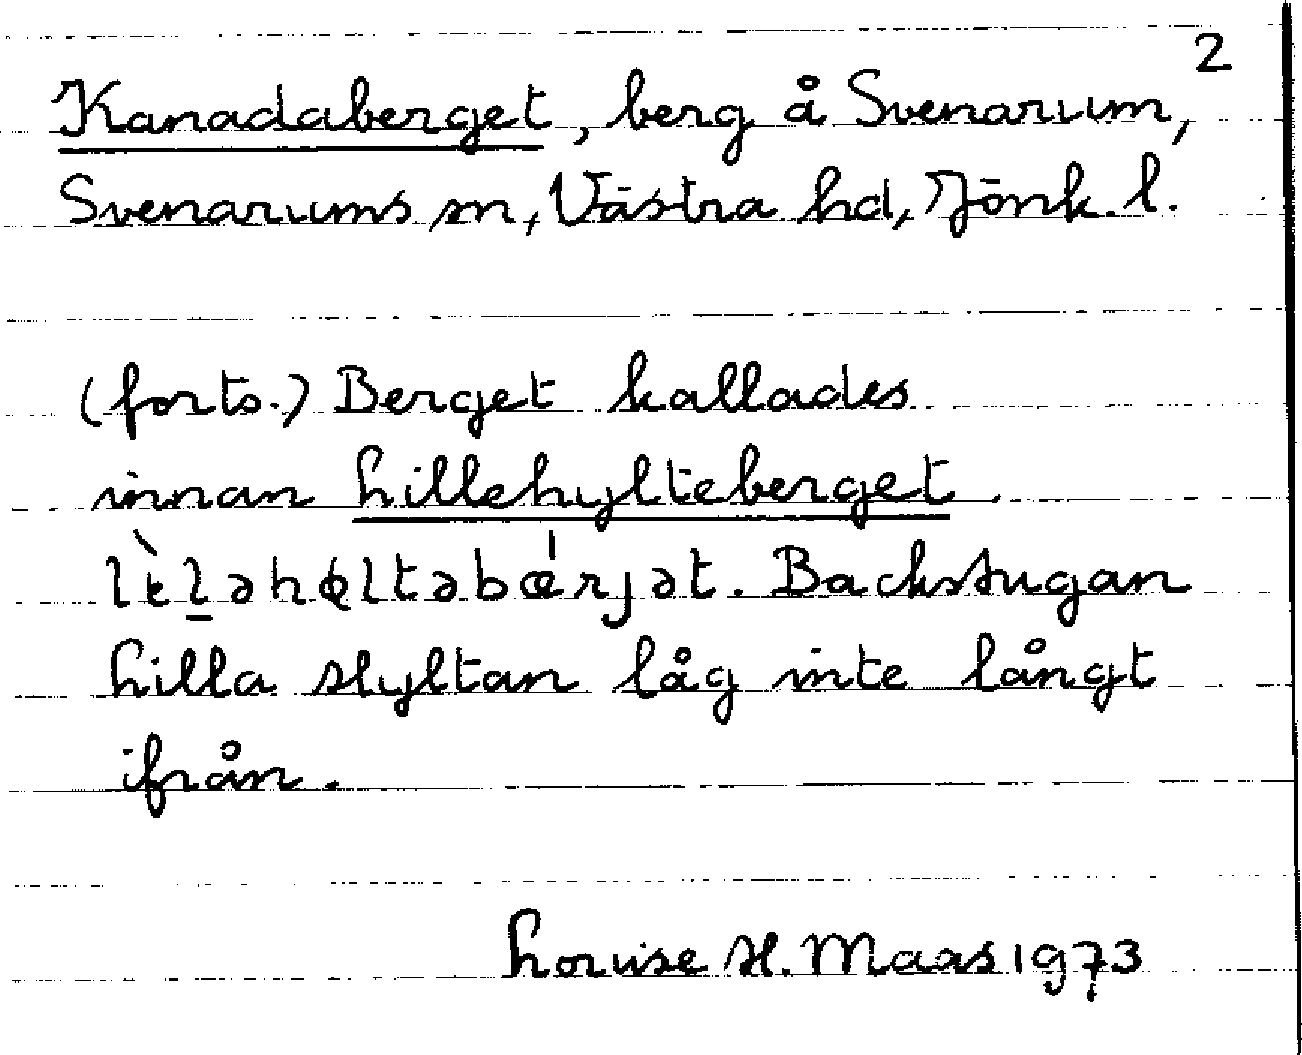 2
Kanadaberget, berg å Svenarum,
Svenarums sn, Västra hd, Jönk. l.
(forts.) Berget kallades
innan Lillehylteberget.
lèl̲əhɵltəbǿrjət. Backstugan
Lilla Hyltan låg inte långt
ifrån.
Louise H. Maas 1973